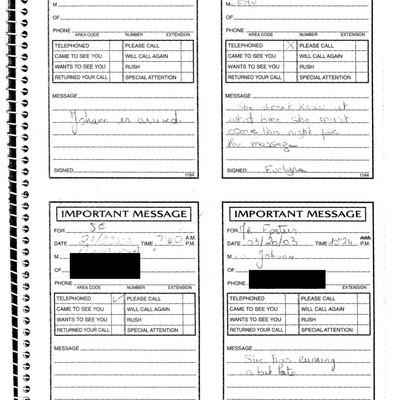 M
OF
PHONE
AREA CODE NUMBER EXTENSION
TELEPHONED PLEASE CALL
CAME TO SEE YOU WILL CALL AGAIN
WANTS TO SEE YOU RUSH
RETURNED YOUR CALL SPECIAL ATTENTION
MESSAGE
is arrived
SIGNED
1184
M
OF
PHONE
AREA CODE NUMBER EXTENSION
TELEPHONED X PLEASE CALL
CAME TO SEE YOU WILL CALL AGAIN
WANTS TO SEE YOU RUSH
RETURNED YOUR CALL SPECIAL ATTENTION
MESSAGE
She doesn't know at
what time she must
come this night for
the massage
SIGNED Evelyne
1184
IMPORTANT MESSAGE
FOR
DATE TIME 7:40 A.M. P.M.
M
OF
AREA CODE NUMBER EXTENSION
TELEPHONED ✓ PLEASE CALL
CAME TO SEE YOU WILL CALL AGAIN
WANTS TO SEE YOU RUSH
RETURNED YOUR CALL SPECIAL ATTENTION
MESSAGE
IMPORTANT MESSAGE
FOR Mr Epstein
DATE 03/20/03 TIME P.M.
M
OF
PHONE
AREA CODE NUMBER EXTENSION
TELEPHONED PLEASE CALL
CAME TO SEE YOU WILL CALL AGAIN
WANTS TO SEE YOU RUSH
RETURNED YOUR CALL SPECIAL ATTENTION
MESSAGE
She has running
a bit late